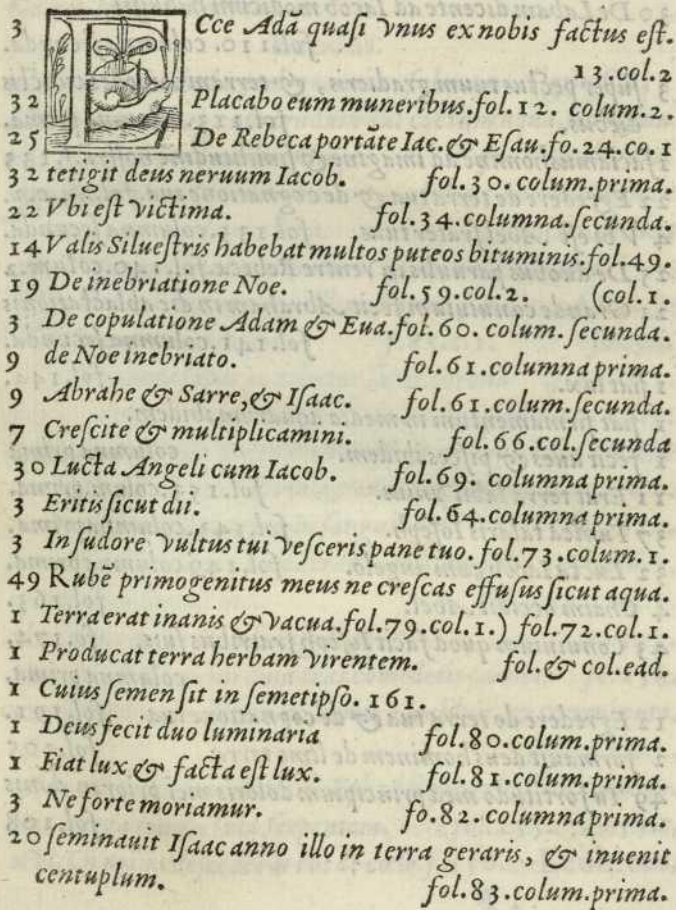 3 ECce Adã quaſi vnus ex nobis factus eſt.
13.col.2
32 Placabo eum muneribus.fol.12. colum.2.
25 De Rebeca portãte Iac.& Eſau.fo.24.co.1
32 tetigit deus neruum Iacob. fol.30. colum.prima.
22 Vbi eſt victima. fol.34.columna.ſecunda.
14 Valis Silueſtris habebat multos puteos bituminis.fol.49.
19 De inebriatione Noe. fol.59.col.2. (col.1.
3 De copulatione Adam & Eua.fol.60. colum.ſecunda.
9 de Noe inebriato. fol.61.columna prima.
9 Abrahe & Sarre,& Iſaac. fol.61.colum.ſecunda.
7 Creſcite & multiplicamini. fol.66.col.ſecunda
30 Lucta Angeli cum Iacob. fol.69. columna prima.
3 Eritis ſicut dii. fol.64.columna prima.
3 In ſudore vultus tui veſceris pane tuo.fol.73.colum.1.
49 Rubẽ primogenitus meus ne creſcas effuſus ſicut aqua.
1 Terra erat inanis & vacua.fol.79.col.1.) fol.72.col.1.
1 Producat terra herbam virentem. fol.& col.ead.
1 Cuius ſemen ſit in ſemetipſo. 161.
1 Deus fecit duo luminaria fol.80.colum.prima.
1 Fiat lux & facta eſt lux. fol.81.colum.prima.
3 Ne forte moriamur. fo.82.columna prima.
20 ſeminauit Iſaac anno illo in terra geraris, & inuenit
centuplum. fol.83.colum.prima.